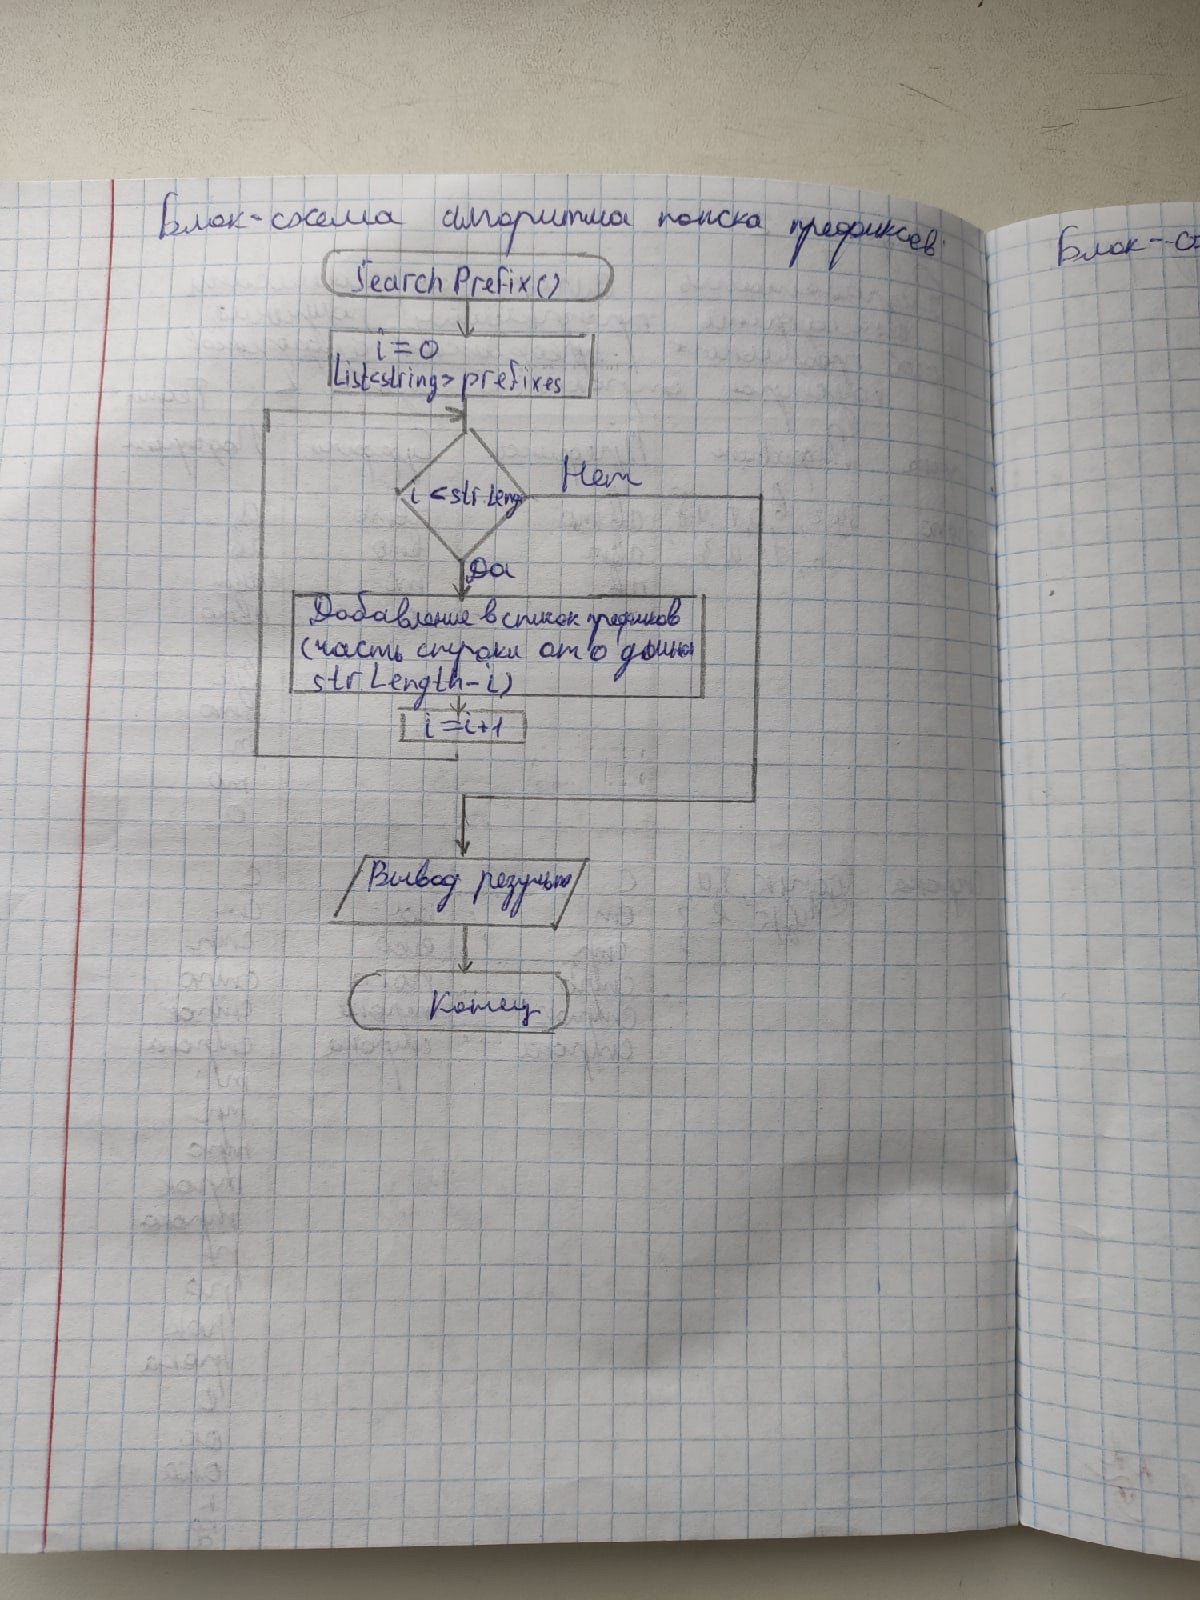 Блок-схема алгоритма поиска префиксов
Блок-с
SearchPrefix()
i=0
List<string> prefixes
i < str.Leng
Нет
Да
Добавление в список префиксов
(часть строки от 0 длины
str Length-i)
i=i+1
Вывод результа
Конец